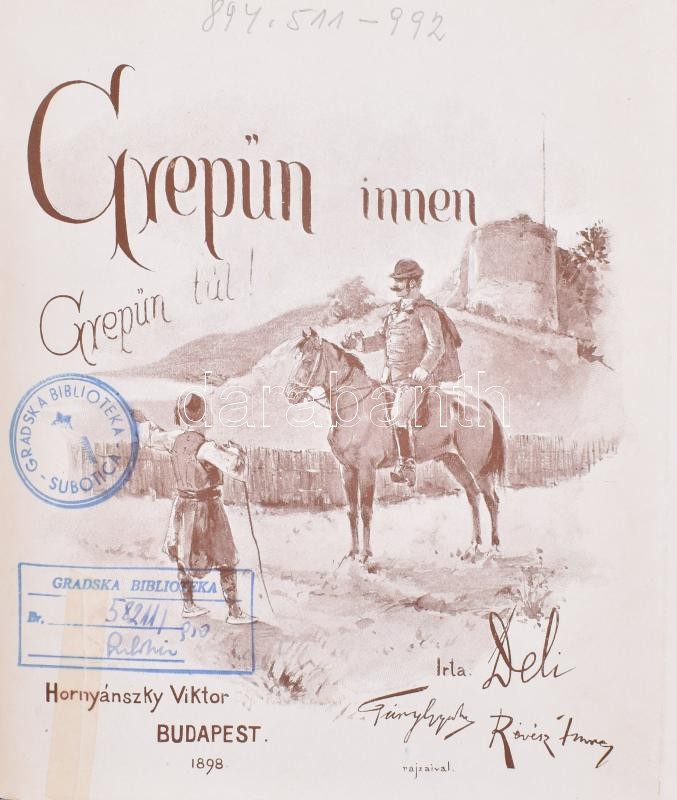 894.511-992
Grepün innen
Grepün túl!
GRADSKA BIBLIOTEKA
- SUBOTICA -
darabanth
GRADSKA BIBLIOTEKA
Br. 58211/
Irta. Deli
Hornyánszky Viktor
BUDAPEST.
Révész Imre
1898.
rajzaival.